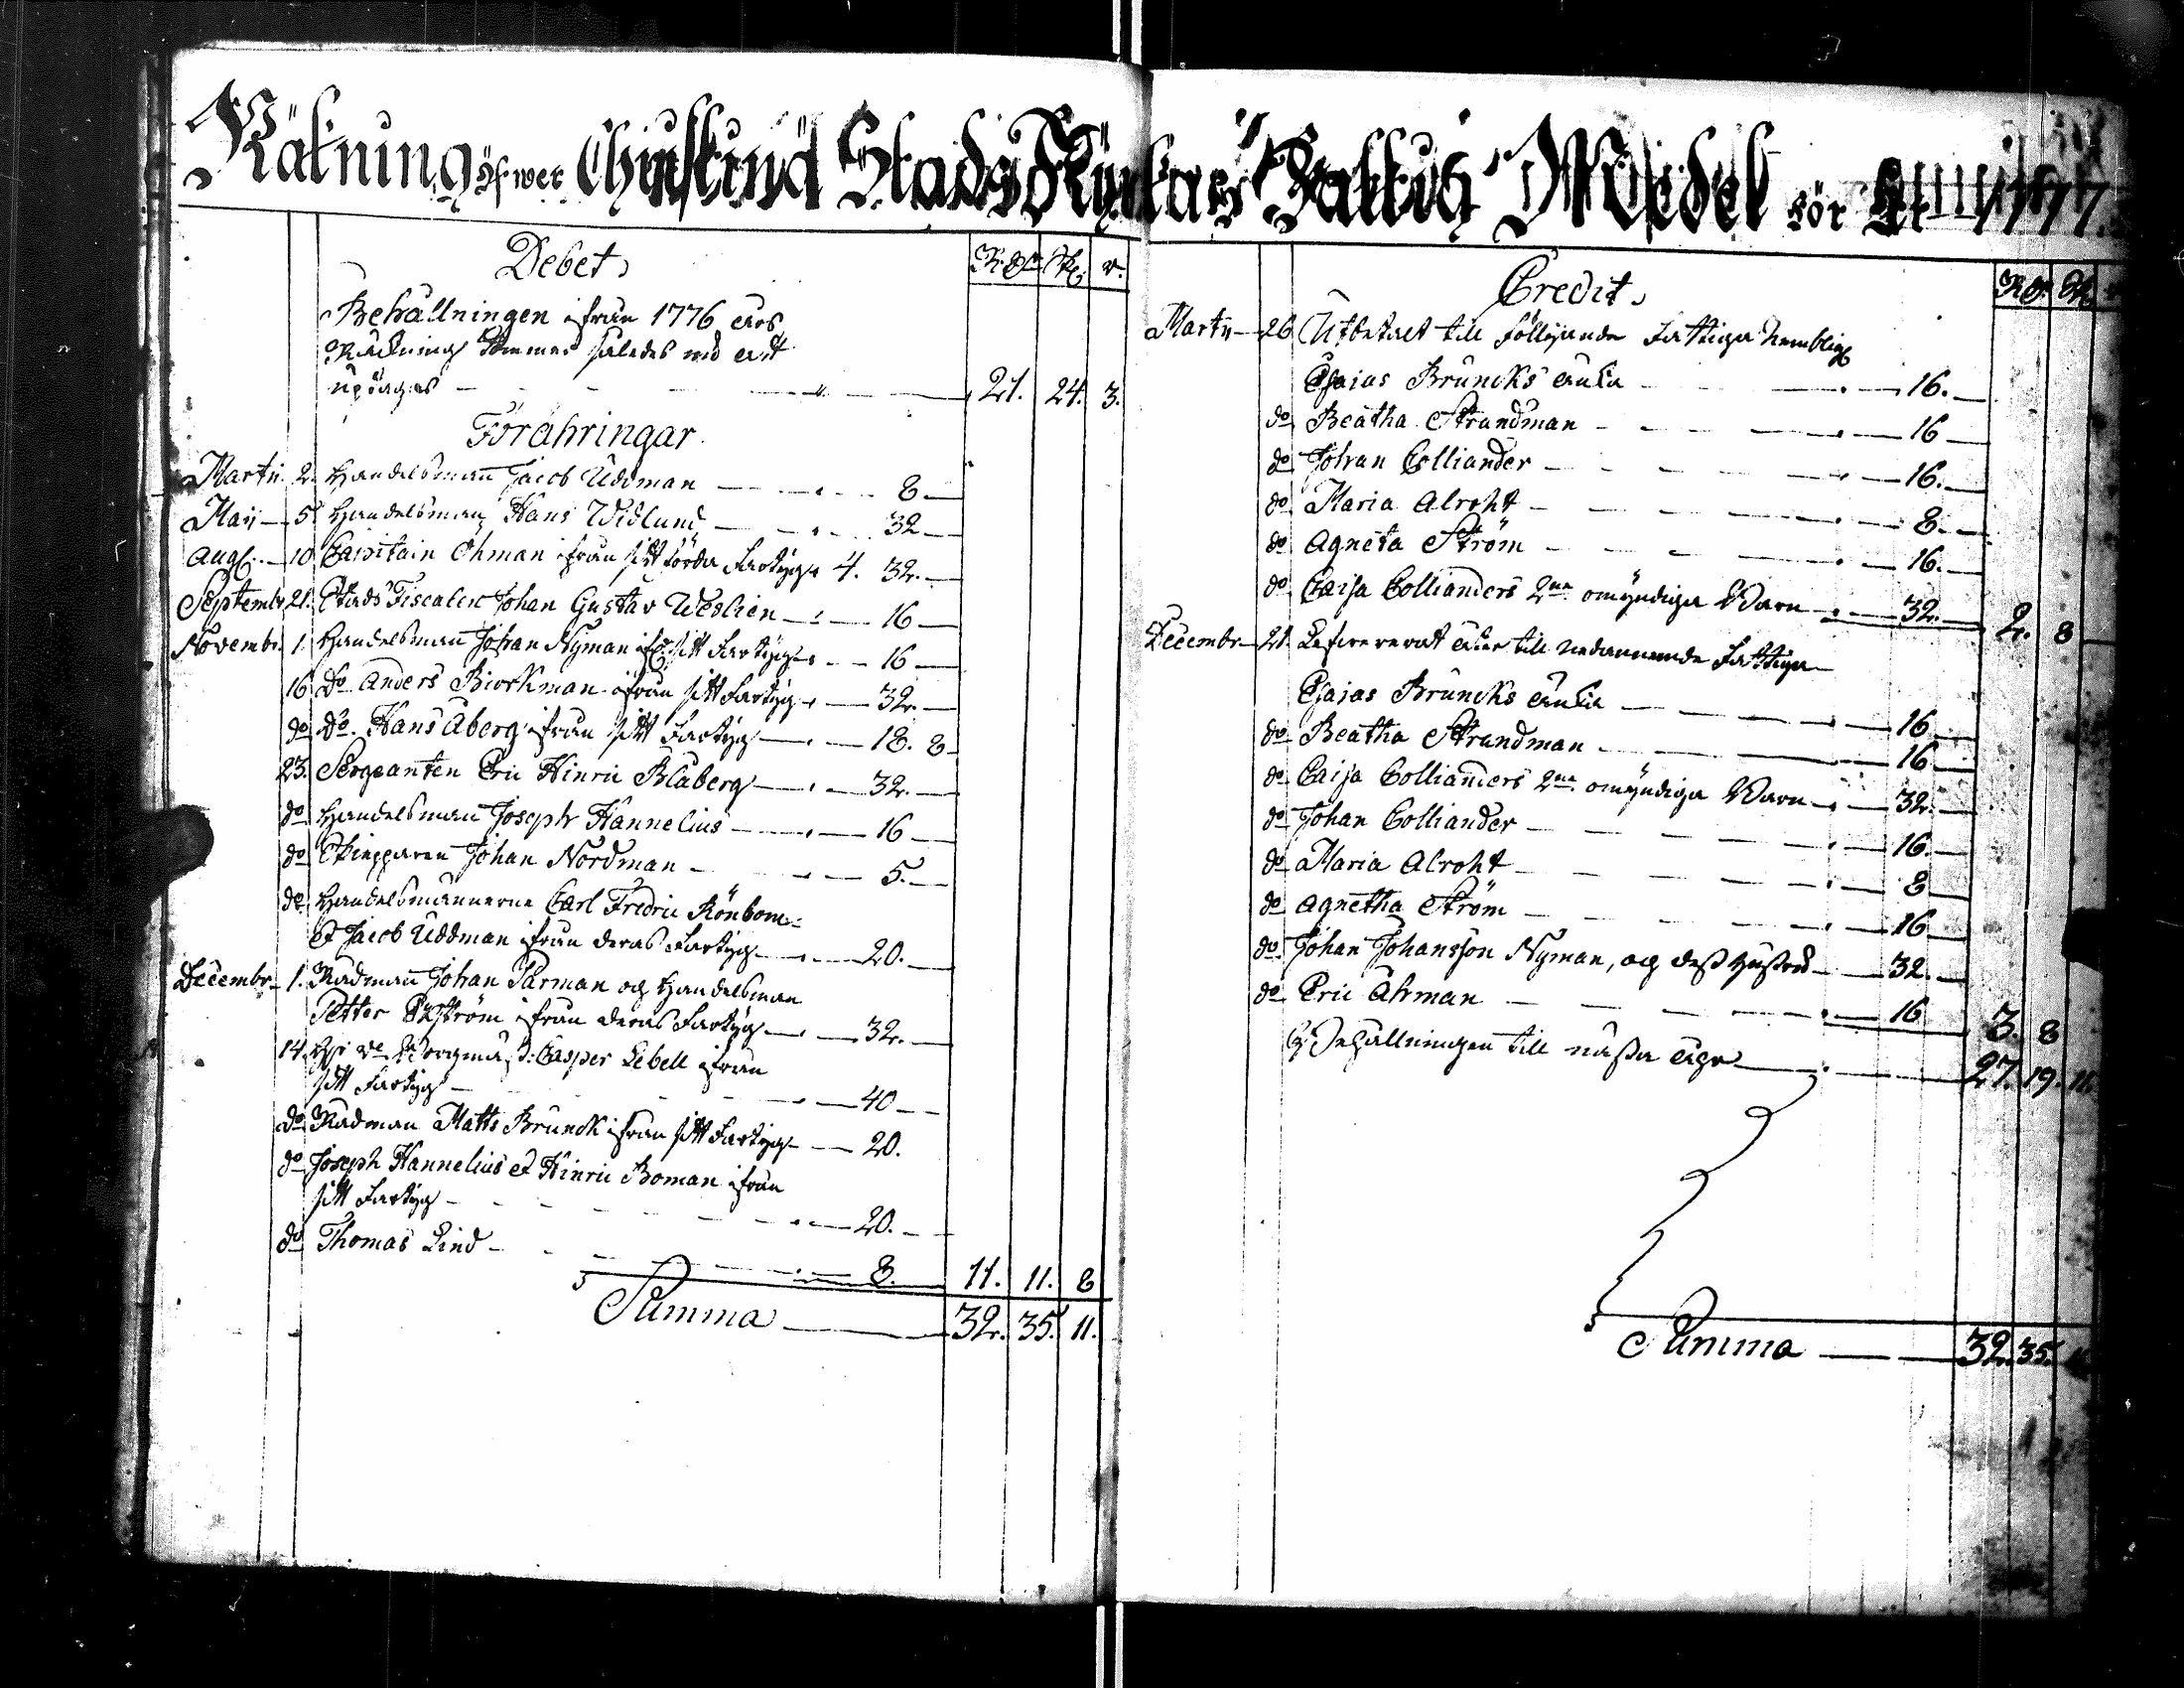 Räkning öfwer Christinæ Stads Kyrkas Fattig Medel för År 1777.
Debet R:dr Sk. r.
Behållningen ifrån 1776 års
Räckning kommer således nu att
uptagas 21. 24. 3.
Förähringar
Martii. 2. Handelsman Jacob Uddman 8
Maij 5 Handelsman Hans Widlund 32
Aug. 10 Capitain Öhman ifrån sitt förda Fartyg 4. 32.
Septembr 21. Stads Fiscalen Johan Gustav Weslien 16
Novembr. 1. Handelsman Johan Nyman ifr. sitt Fartyg 16
16 Do Anders Biorkman ifrån sitt Fartyg 32.
do Do. Hans Åberg ifrån sitt Fartyg 18. 8
23. Sergeanten Eric Hinric Blåberg 32.
do Handelsman Joseph Hannelius 16
do Skepparen Johan Nordman 5.
do Handelsmännerne Carl Fredric Rönbom
et Jacob Uddman ifrån deras Fartyg 20.
Decembr 1. Rådman Johan Parman og Handelsman
Petter Ekström ifrån deras Fartyg 32.
14. Casper Lebell ifrån
sitt Fartyg 40
do Rådman Matts Brunck ifrån sitt Fartyg 20.
do Joseph Hannelius et Hinric Boman ifrån
sitt Fartyg 20.
do Thomas Lind 8. 11. 11. 8
Summa 32. 35. 11.
Credit R:dr Sk
Martii 26 Utbetalt till följande Fattiga nembligt
Esaias Bruncks enka 16.
do Beatha Strandman 16
do Johan Colliander 16.
do Maria Alroht 8
do Agneta Ström 16.
do Caisa Collianders 2ne omyndiga Barn 32. 2. 8
Decembr 21. Lefwererat åter till nedannemde Fattiga
Esaias Bruncks enka 16
do Beatha Strandman 16
do Caisa Collianders 2ne omyndiga Barn 32.
do Johan Colliander 16
do Maria Alroht 8
do Agnetha Ström 16
do Johan Johansson Nyman, og dess hustru 32.
do Eric Åhman 16 3. 8
Behållningen till nästa åhr 27. 19. 11.
Summa 32. 35. 11